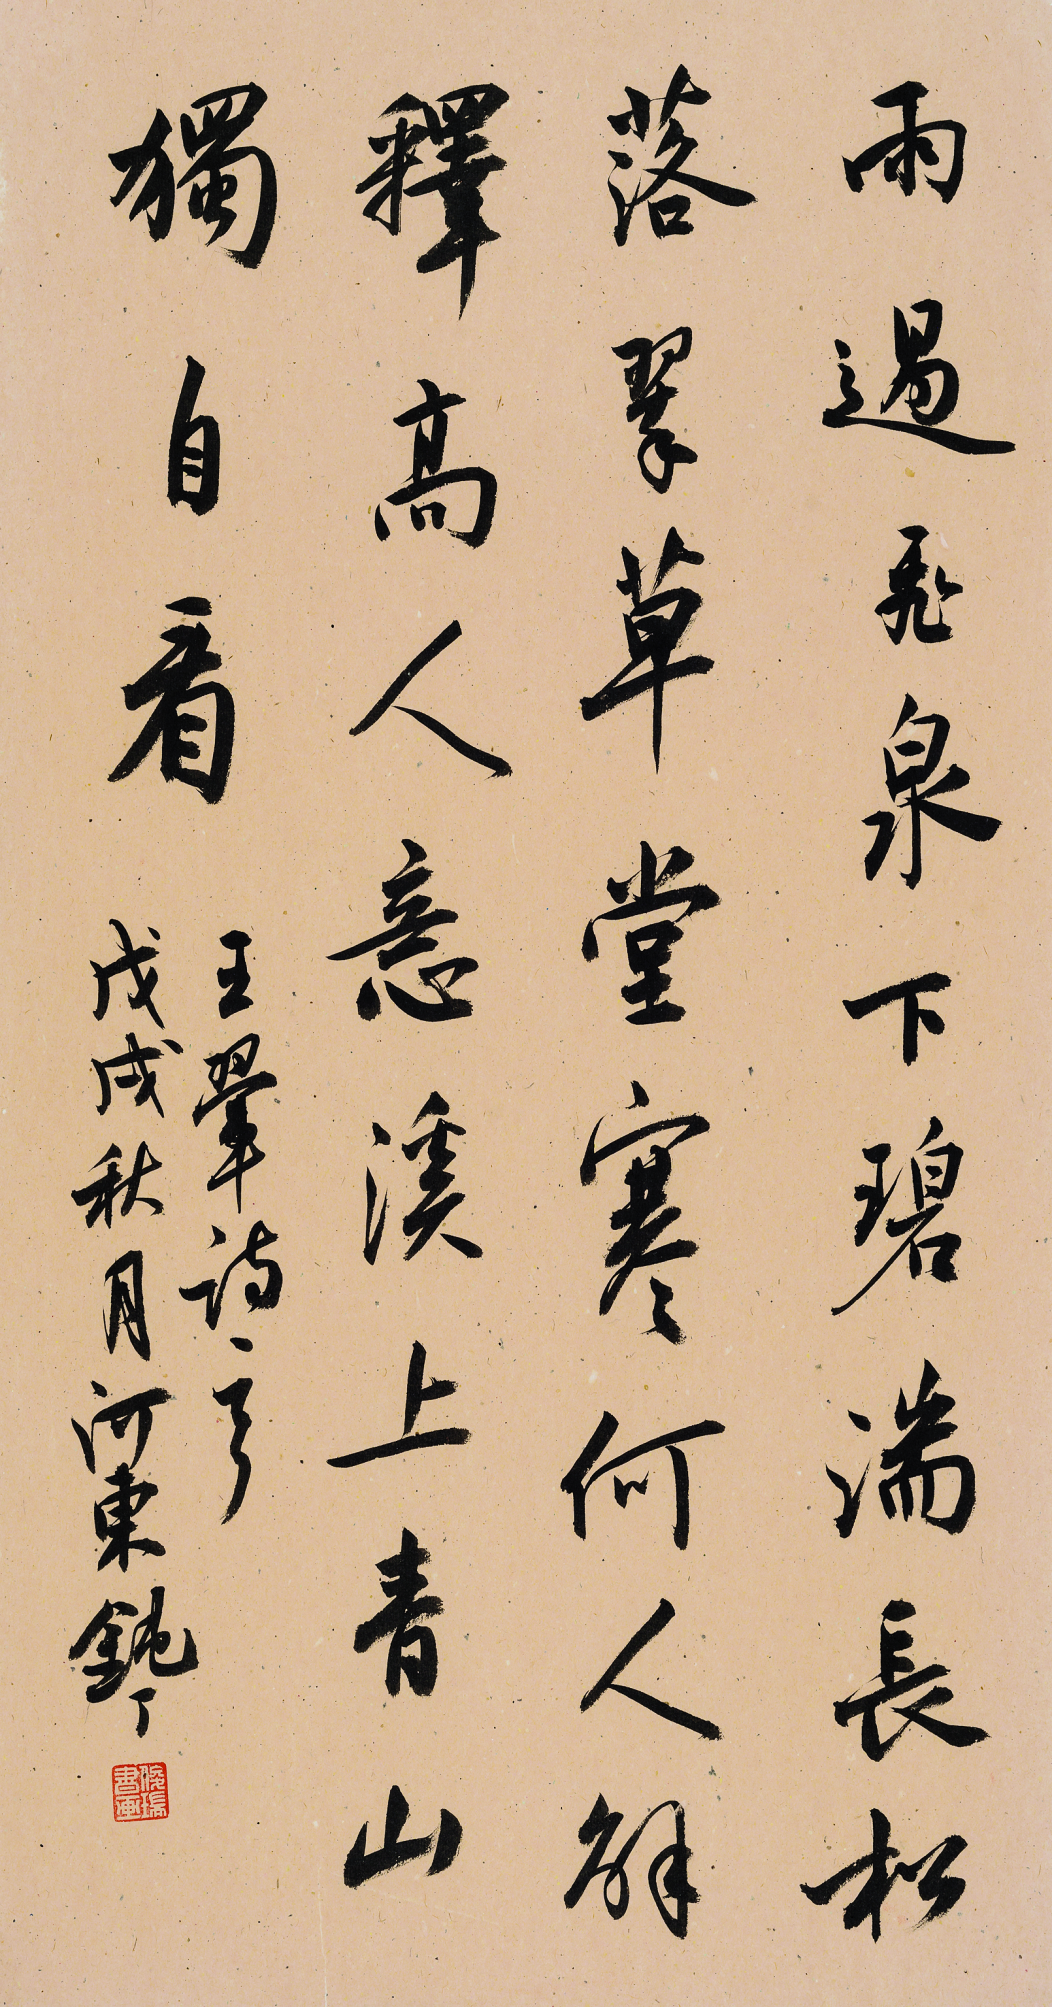 雨過飛泉下碧湍長松
落翠草堂寒何人解
釋高人意溪上青山
獨自看
王翬詩一首
戊戌秋月河東鈍丁
俊瑞書画